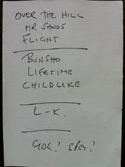 OVER THE HILL
MR SANDS
FLIGHT
BUNSHO
LIFETIME
CHILDLIKE
L-K.